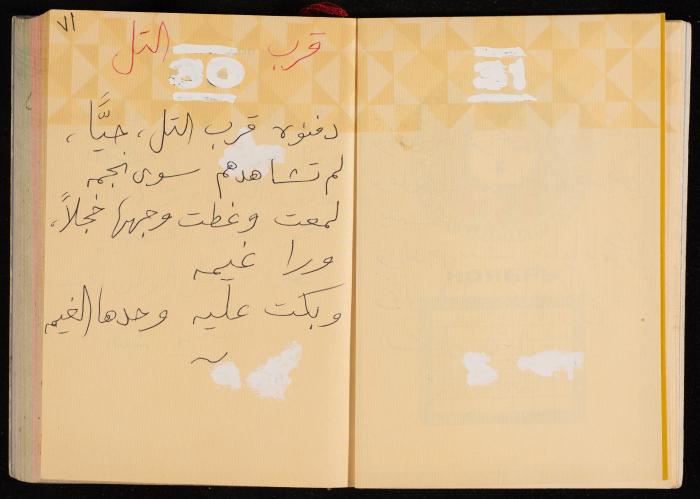 ٧١
قرب التل
30
31
دفنوه قرب التل، حيًّا،
لم تشاهدهم سوى نجمه
لمعت وغطت وجهها خجلاً،
ورا غيمه
وبكت عليه وحدها الغيمه